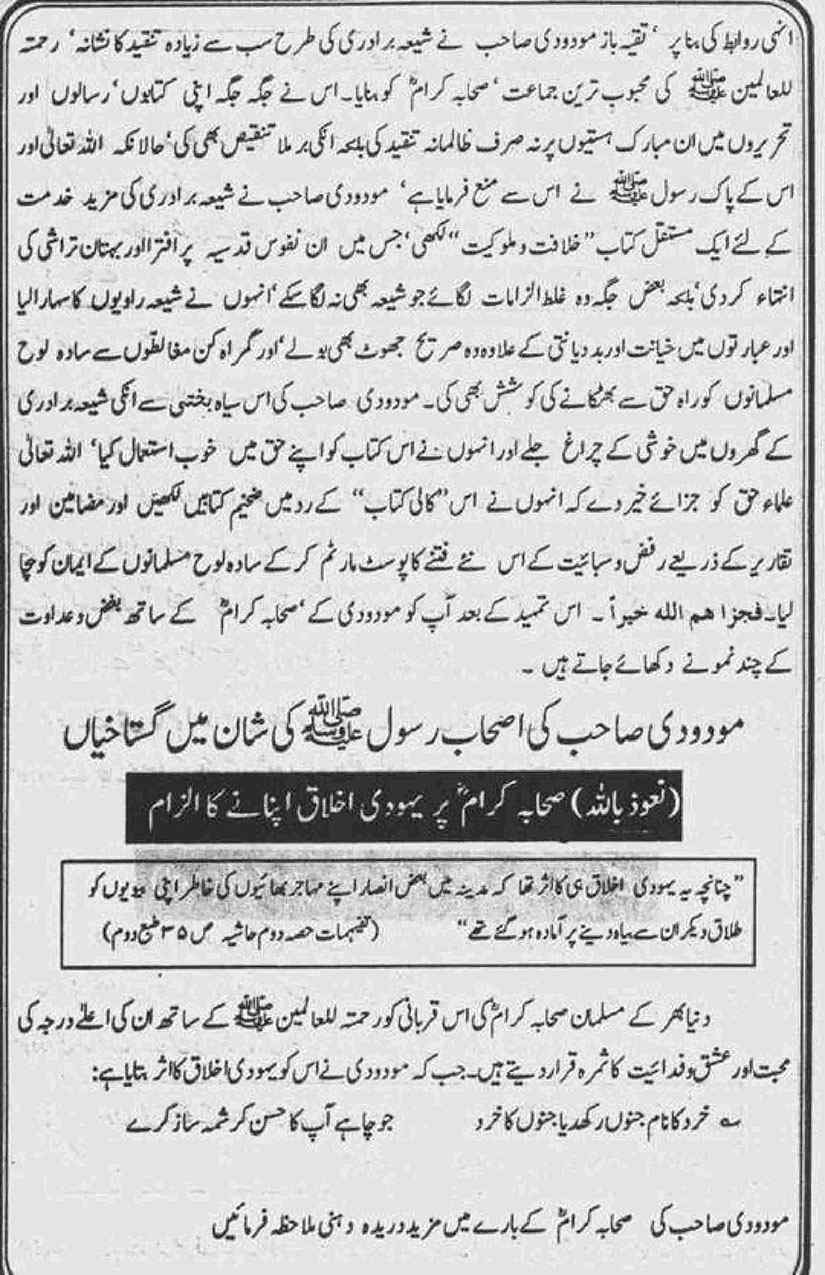 انہی روابط کی بنا پر ‘ تقیہ باز مودودی صاحب نے شیعہ برادری کی طرح سب سے زیادہ تنقید کا نشانہ ‘ رحمتہ
للعالمین ﷺ کی محبوب ترین جماعت ‘ صحابہ کرامؓ کو بنایا۔ اس نے جگہ جگہ اپنی کتابوں‘ رسالوں اور
تحریروں میں ان مبارک ہستیوں پر نہ صرف ظالمانہ تنقید کی بلکہ انکی برملا تنقیص بھی کی‘ حالانکہ اللہ تعالیٰ اور
اس کے پاک رسول ﷺ نے اس سے منع فرمایا ہے‘ مودودی صاحب نے شیعہ برادری کی مزید خدمت
کے لئے ایک مستقل کتاب ”خلافت و ملوکیت“ لکھی‘ جس میں ان نفوس قدسیہ پر افترا اور بہتان تراشی کی
انتہاء کر دی‘ بلکہ بعض جگہ وہ غلط الزامات لگائے جو شیعہ بھی نہ لگا سکے‘ انہوں نے شیعہ راویوں کا سہارا لیا
اور عبارتوں میں خیانت اور بددیانتی کے علاوہ وہ صریح جھوٹ بھی بولے‘ اور گمراہ کن مغالطوں سے سادہ لوح
مسلمانوں کو راہ حق سے بھٹکانے کی کوشش بھی کی۔ مودودی صاحب کی اس سیاہ بختی سے انکی شیعہ برادری
کے گھروں میں خوشی کے چراغ جلے اور انہوں نے اس کتاب کو اپنے حق میں خوب استعمال کیا‘ اللہ تعالیٰ
علماء حق کو جزائے خیر دے کہ انہوں نے اس ”کالی کتاب“ کے رد میں ضخیم کتابیں لکھیں اور مضامین اور
تقاریر کے ذریعے رفض و سبائیت کے اس نئے فتنے کا پوسٹ مارٹم کر کے سادہ لوح مسلمانوں کے ایمان کو بچا
لیا۔ فجزا ھم اللہ خیراً ۔ اس تمہید کے بعد آپ کو مودودی کے ‘ صحابہ کرامؓ کے ساتھ بغض و عداوت
کے چند نمونے دکھائے جاتے ہیں ۔
مودودی صاحب کی اصحاب رسول ﷺ کی شان میں گستاخیاں
(نعوذ باللہ) صحابہ کرامؓ پر یہودی اخلاق اپنانے کا الزام
”چنانچہ یہ یہودی اخلاق ہی کا اثر تھا کہ مدینہ میں بعض انصار اپنے مہاجر بھائیوں کی خاطر اپنی بیویوں کو
طلاق دیکر ان سے بیاہ دینے پر آمادہ ہو گئے تھے“ (تفہیمات حصہ دوم حاشیہ ص ۳۵ طبع دوم)
دنیا بھر کے مسلمان صحابہ کرامؓ کی اس قربانی کو رحمتہ للعالمین ﷺ کے ساتھ ان کی اعلےٰ درجہ کی
محبت اور عشق و فدائیت کا ثمرہ قرار دیتے ہیں۔ جب کہ مودودی نے اس کو یہودی اخلاق کا اثر بتایا ہے:
؎ خرد کا نام جنوں رکھدیا جنوں کا خرد جو چاہے آپ کا حسن کرشمہ ساز کرے
مودودی صاحب کی صحابہ کرامؓ کے بارے میں مزید دریدہ دہنی ملاحظہ فرمائیں